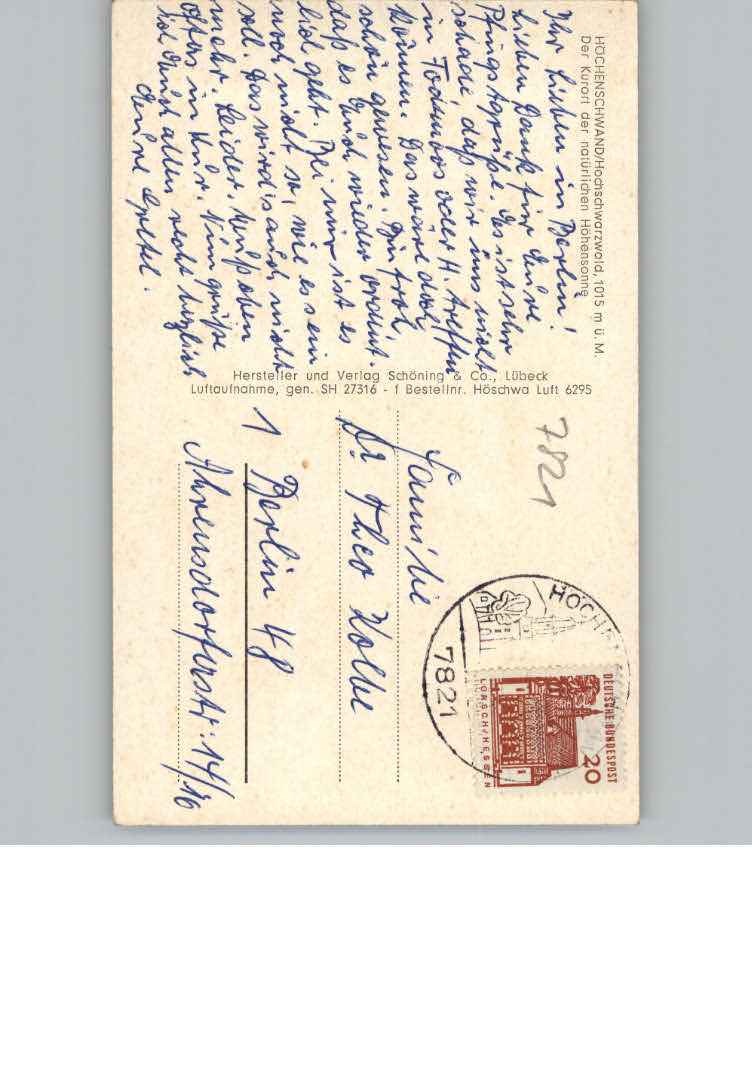 HÖCHENSCHWAND/Hochschwarzwald, 1015 m ü. M.
Der Kurort der natürlichen Höhensonne
Ihr Lieben in Berlin!
Lieben Dank für Eure
Pfingstgrüße. Es ist sehr
schade daß wir uns nicht
in Todtmoos oder H. treffen
können. Das wäre doch
schön gewesen. Bin froh
daß es Euch wieder ordent-
lich geht. Bei mir ist es
noch nicht so, wie es sein
soll. Das wird's auch nicht
mehr. Leider. Muß eben
öfters in Kur. Nun grüße
ich Euch allen recht herzlich
Eure
Hersteller und Verlag Schöning & Co., Lübeck
Luftaufnahme, gen. SH 27316 - f Bestellnr. Höschwa Luft 6295
7821
HÖCHEN
7821
DEUTSCHE BUNDESPOST
20
LORSCH/HESSEN
Familie
Dr. Theo Kolbe
1 Berlin 48
Ahrensdorferstr. 14/16